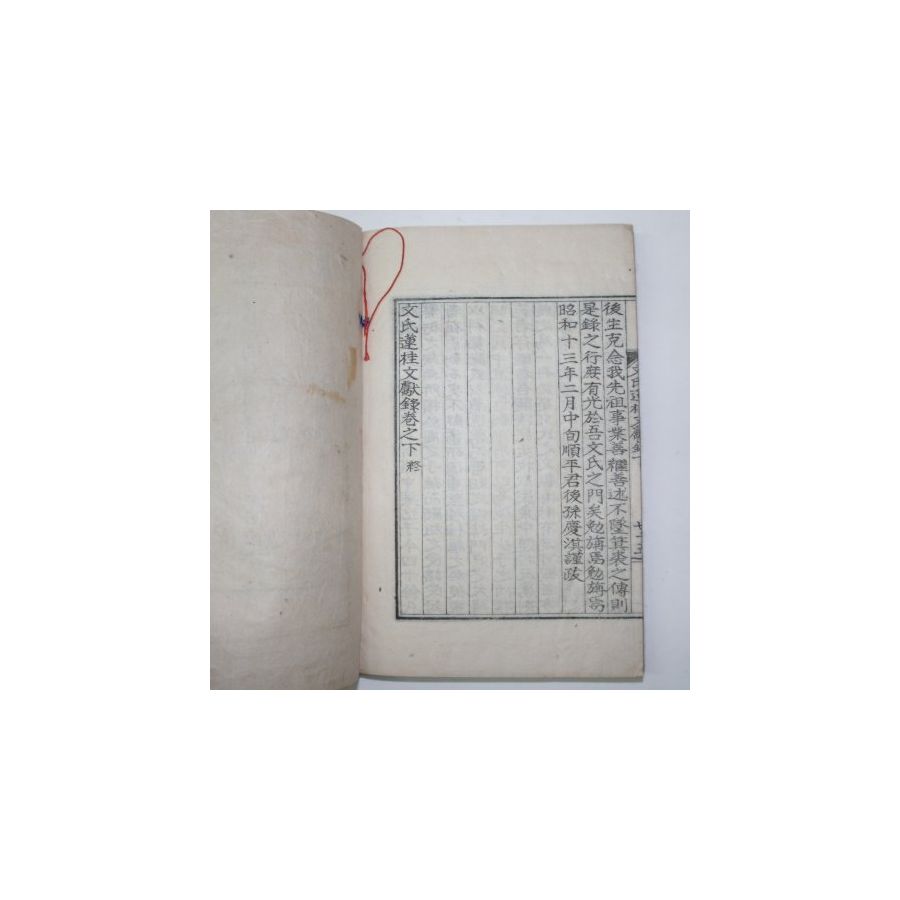 文氏蓮桂文獻錄
後生克念我先祖事業善繼善述不墜箕裘之傳則
是錄之行庶有光於吾文氏之門矣勉旃焉勉旃焉
昭和十三年二月中旬順平君後孫慶淇謹跋
文氏蓮桂文獻錄卷之下 終